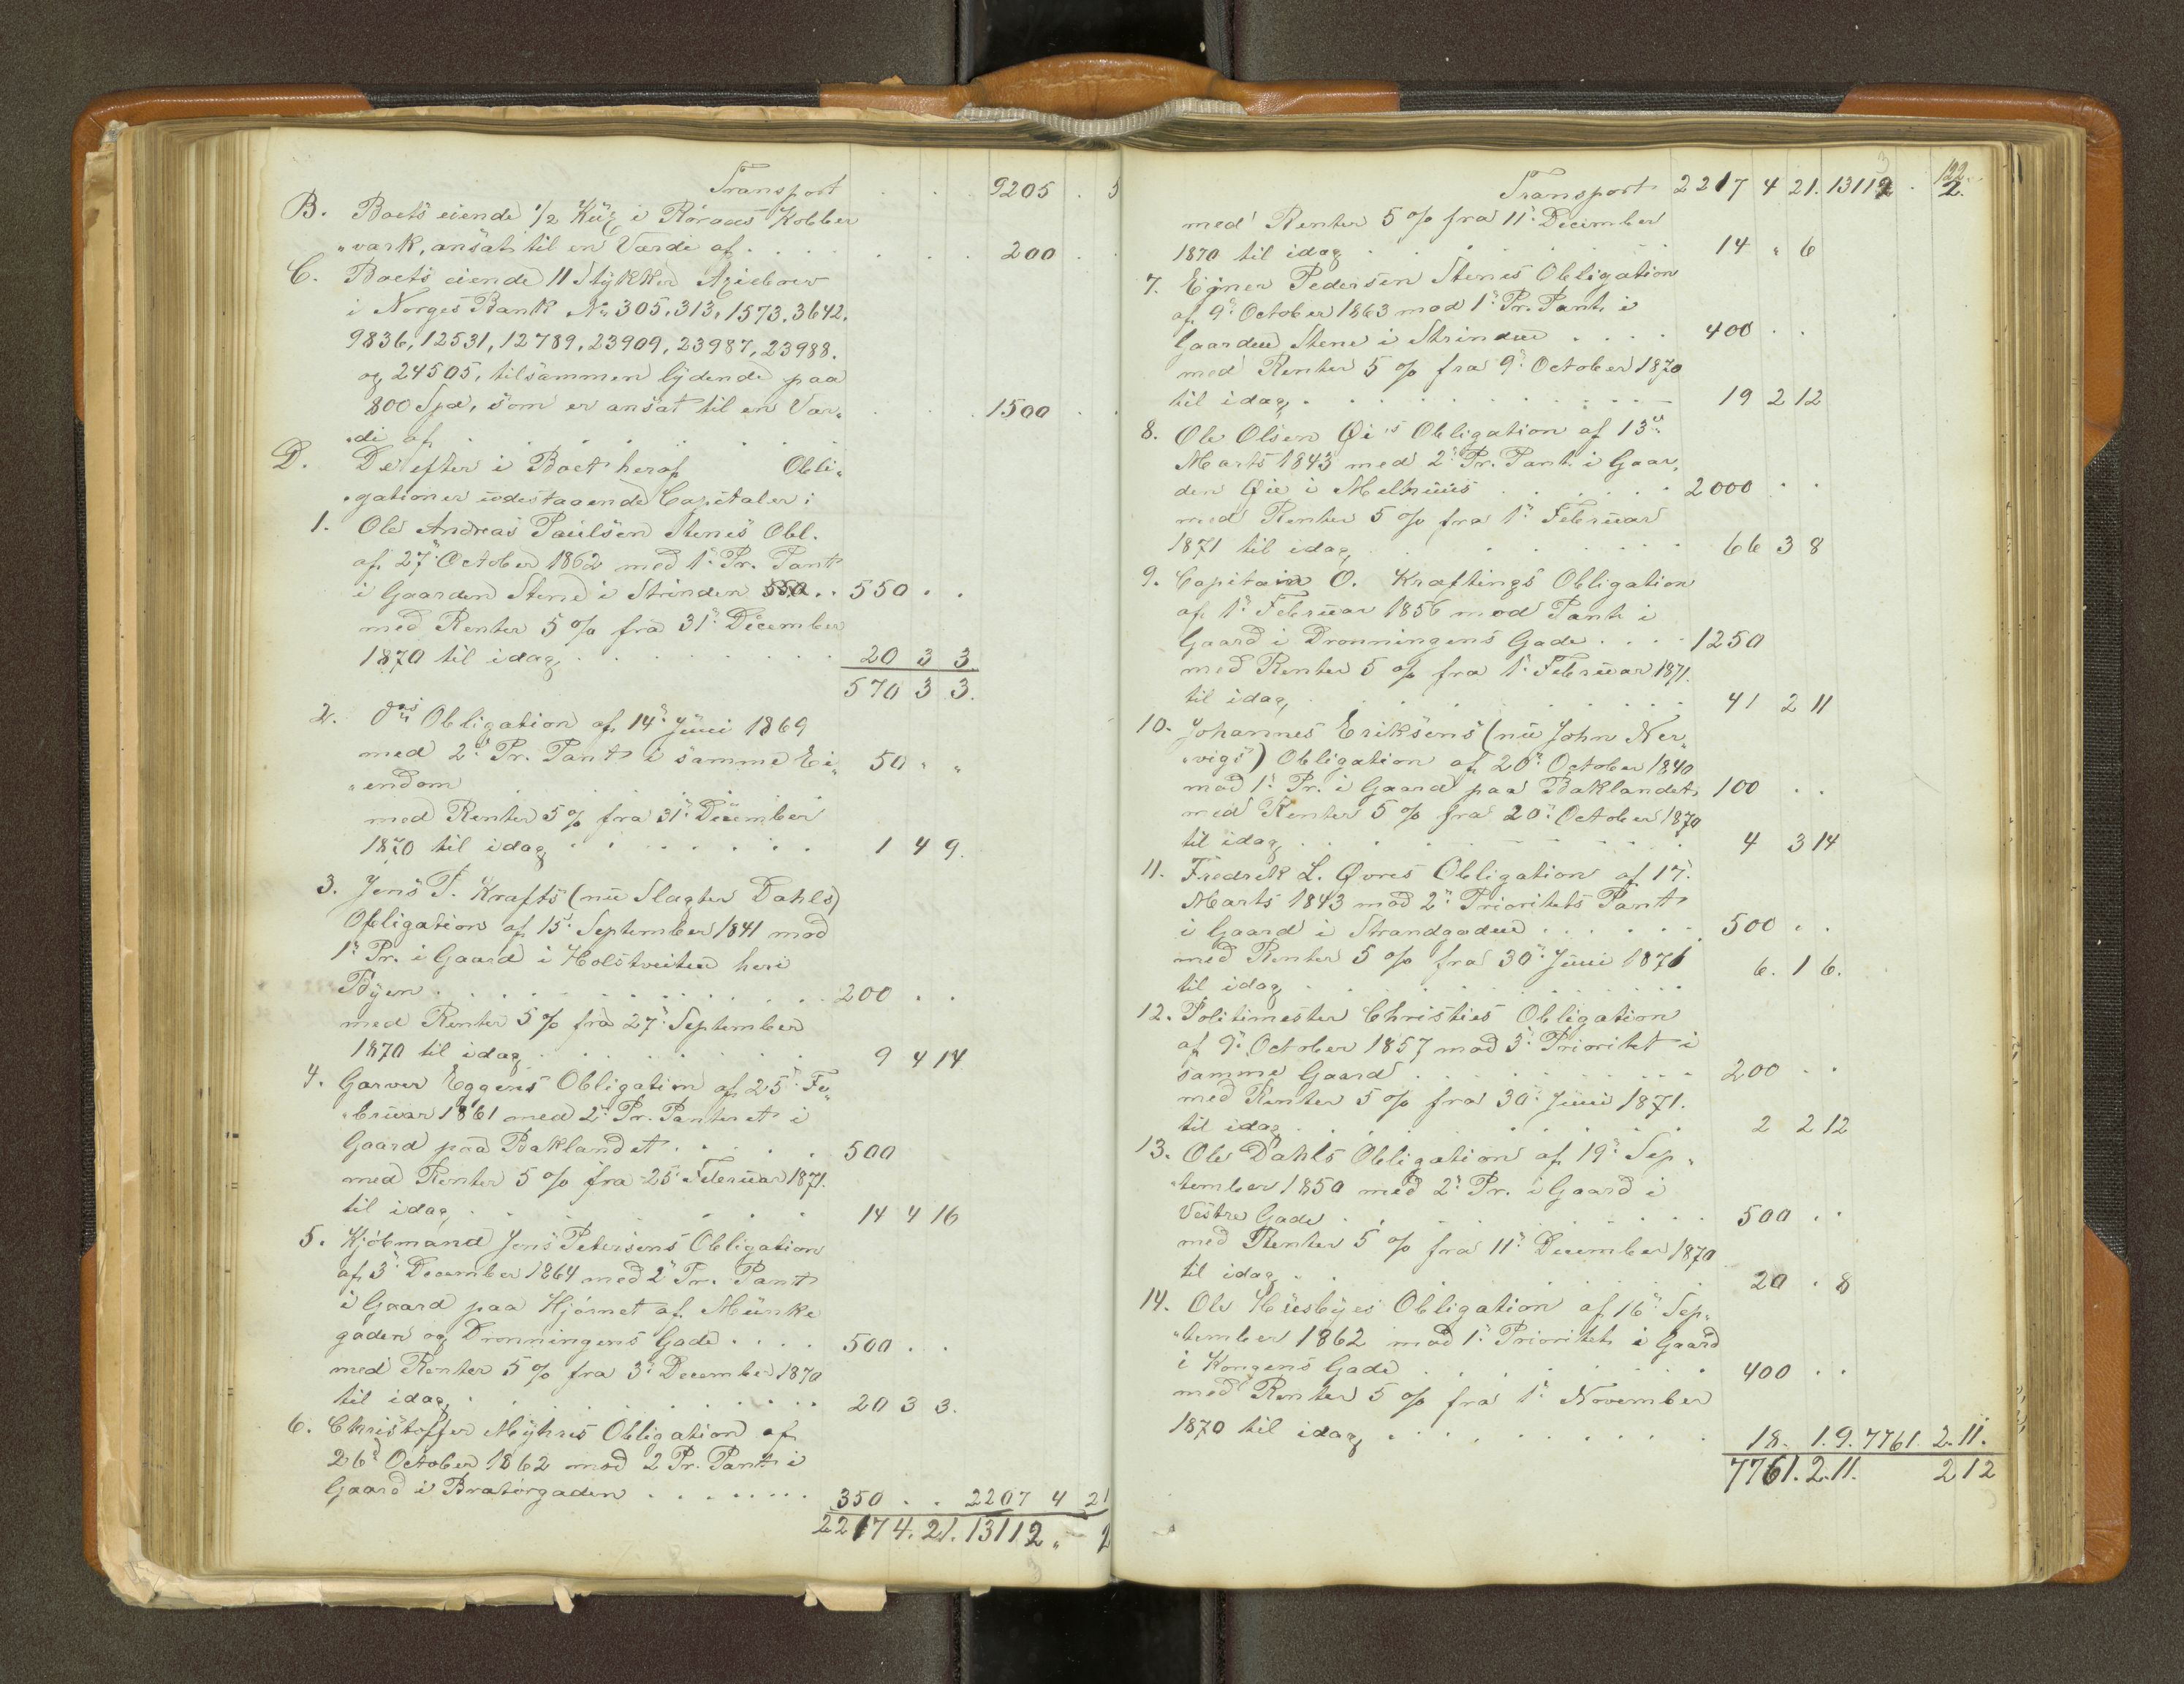 Transport . . . 9205 . 5
B. Boets eiende 1/2 Kux i Röraas Kobber
"værk, ansat til en Værdi af . . . . 200 . .
C. Boets eiende 11 Stykker Axiebrev
i Norges Bank No 305, 313, 1573, 3642,
9836, 12531, 12789, 23909, 23987, 23988.
og 24505, tilsammen lydende paa
800 Spd, som er ansat til en Vær" . . . 1500 . .
"di af . . . . . .
D. Derefter i Boet heraf Obli"
"gationer udestaaende Capitaler:
1. Ole Andreas Paulsen Stenes Obl.
af 27" October 1862 med 1" Pr. Pant
i Gaarden Stene i Strinden 550 . . 550 . .
med Renter 5 % fra 31" December
1870 til idag . . . . . 20 3 3
570 3 3.
2. Obligation af 14" Juni 1869
med 2" Pr. Pant i samme Ei" 50 " "
"endom . . . .
med Renter 5 % fra 31" December
1870 til idag . . . . . 1 4 9.
3. Jens P. Krafts (nu Slagter Dahls)
Obligation af 15" September 1841 mod
1" Pr. i Gaard i Holstveiten heri
Byen . . . . . . . 200 . .
med Renter 5 % fra 27" September
1870 til idag . . . . . 9 4 14
4. Garver Eggens Obligation af 25" Fe"
"bruar 1861 med 2" Pr. Panteret i
Gaard paa Baklandet . . . . 500
med Renter 5 % fra 25" Februar 1871.
til idag . . . . . 14 4 16
5. Kjöbmand Jens Petersens Obligation
af 3" December 1864 med 2" Pr. Pant
i Gaard paa Hjörnet af Munke
gaden og Dronningens Gade . . . . 500 . .
med Renter 5 % fra 3" December 1870
til idag . . . . . 20 3 3.
6. Christoffer Myhres Obligation af
26" October 1862 mod 2 Pr. Pant i
Gaard i Bratörgaden . . . . . 350 . . 2207 4 21
2217 4. 21. 13112 " 2
122.
Transport 2217 4 21. 13112 . 2.
med Renter 5 % fra 11" December
1870 til idag . . . . . 14 " 6
7. Ejner Pedersen Stenes Obligation
af 9" October 1863 mod 1" Pr. Pant i
Gaarden Stene i Strinden . . . . 400 . .
med Renter 5 % fra 9" October 1870
til idag . . . . . 19 2 12
8. Ole Olsen Øi's Obligation af 13"
Marts 1843 med 2" Pr. Pant i Gaar"
den Øie i Melhuus . . . . . 2000 . .
med Renter 5 % fra 1" Februar
1871 til idag . . . . . 66 3 8
9. Capitain O. Kraftings Obligation
af 1" Februar 1856 mod Pant i
Gaard i Dronningens Gade . . . . 1250
med Renter 5 % fra 1" Februar 1871.
til idag . . . . . 41 2 11
10. Johannes Eriksens (nu John Ner"
"vigs) Obligation af 20" October 1840
mod 1" Pr. i Gaard paa Baklandet 100 . .
med Renter 5 % fra 20" October 1870
til idag . . . . . 4 3 14
11. Fredrik L. Qvres Obligation af 17"
Marts 1843 mod 2" Prioritets Pant
i Gaard i Strandgaden . . . . . 500 . .
med Renter 5 % fra 30" Juni 1871
til idag . . . . . 6. 1 6.
12. Politimester Christies Obligation
af 9" October 1857 mod 3" Prioritet i
samme Gaard . . . . . 200 . .
med Renter 5 % fra 30" Juni 1871.
til idag . . . . . 2 2 12
13. Ole Dahls Obligation af 19" Sep"
"tember 1850 med 2" Pr. i Gaard i
Vestre Gade . . . . . 500 . .
med Renter 5 % fra 11" December 1870
til idag . . . . . 20 . 8
14. Ole Husbyes Obligation af 16" Sep"
"tember 1862 mod 1" Prioritet i Gaard
i Kongens Gade . . . . . 400 . .
med Renter 5 % fra 1" November
1870 til idag . . . . . 18. 1. 9. 7761. 2. 11.
7761. 2. 11. 2 12